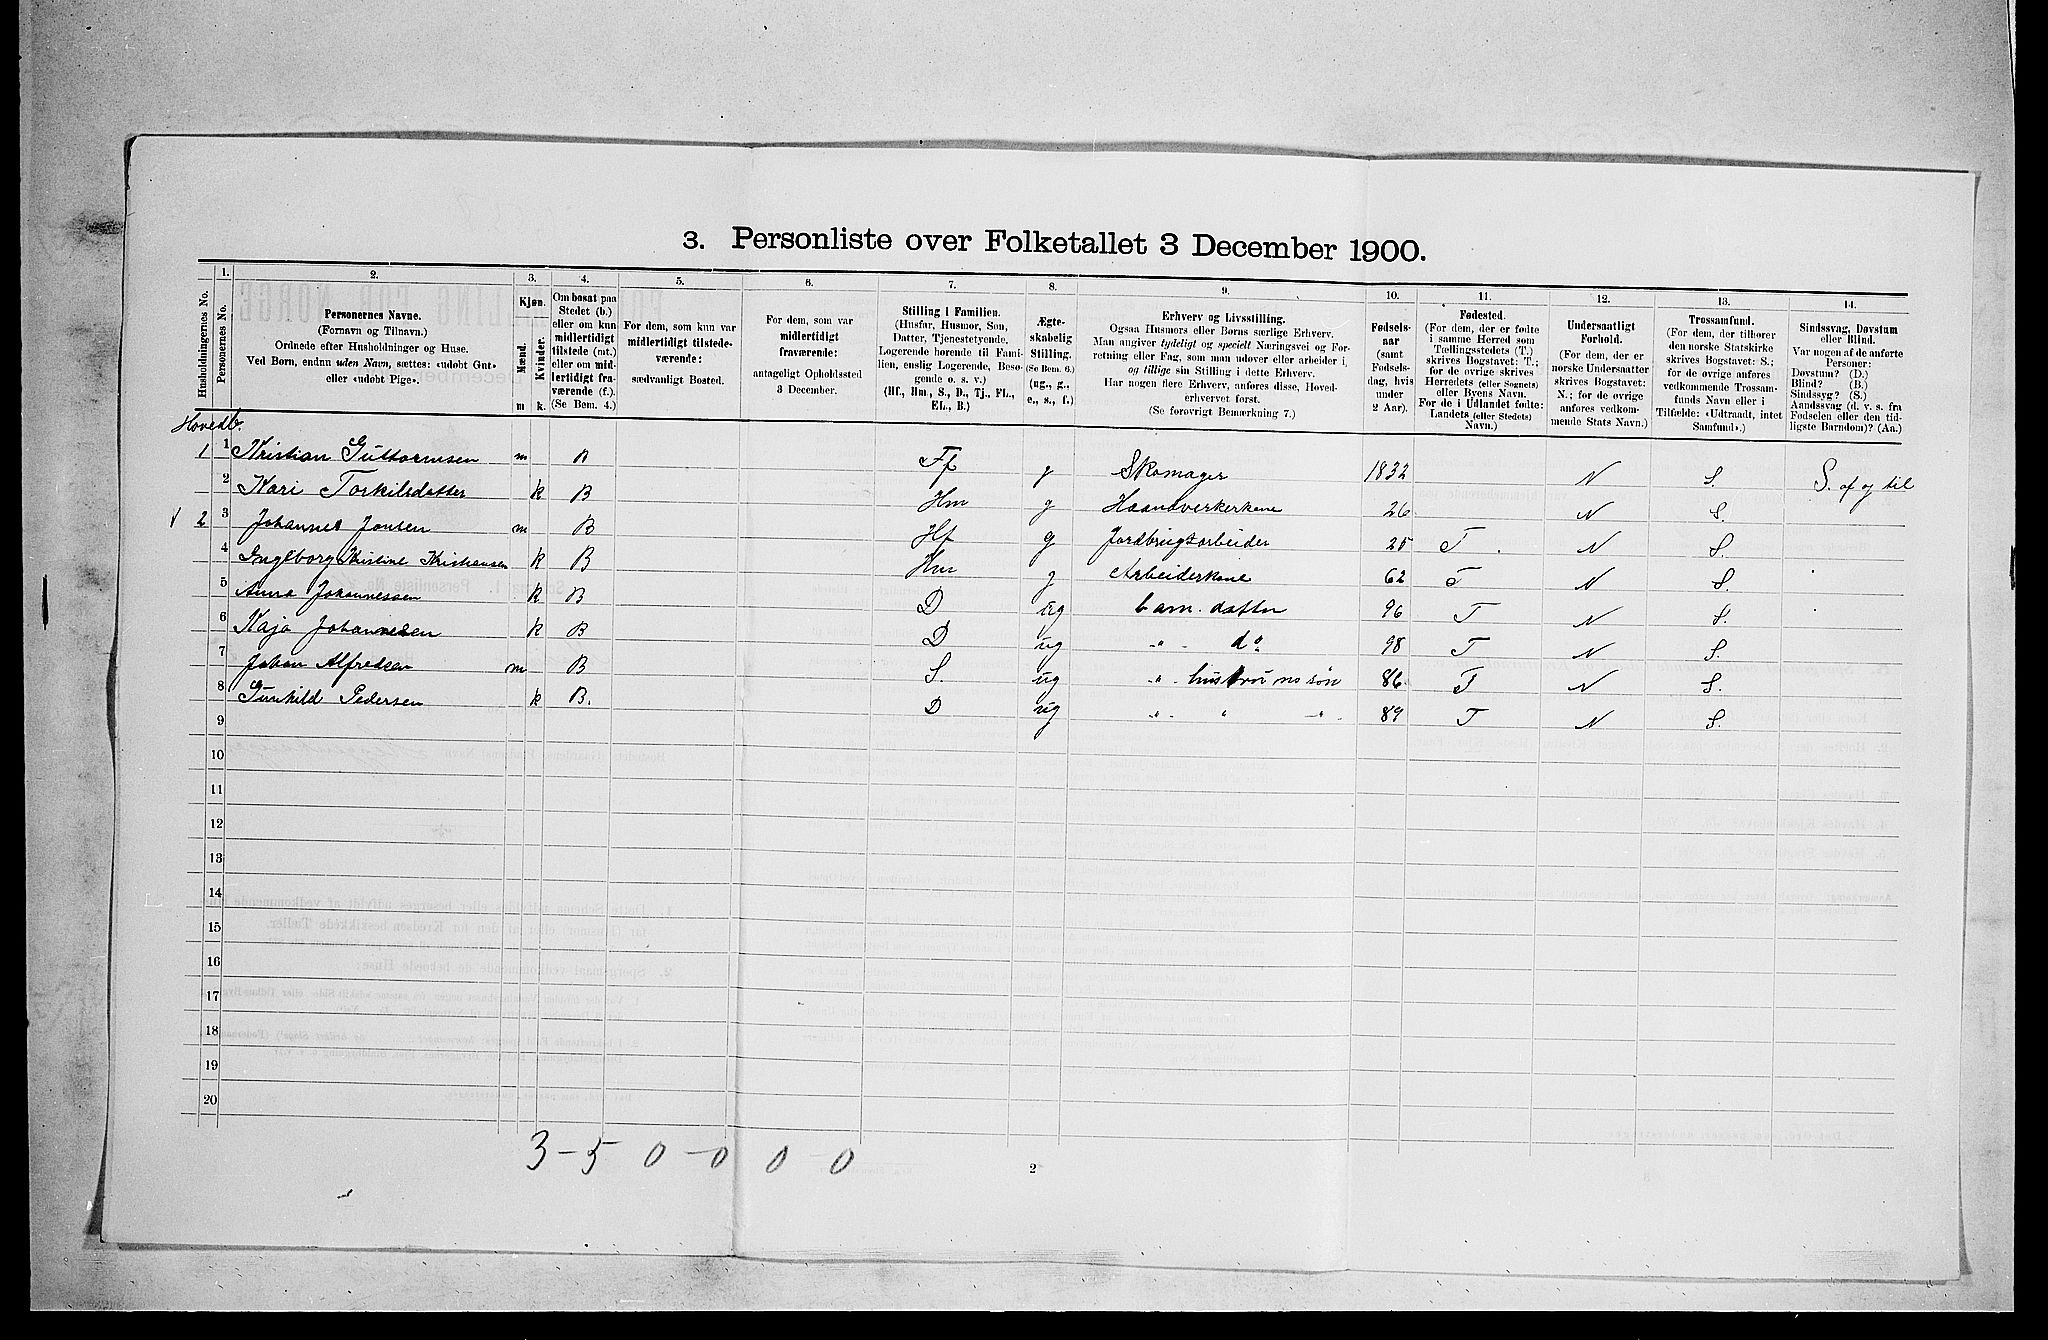 3. Personliste over Folketallet 3 December 1900.
Husholdningernes No.
1. Personernes No.
2. Personernes Navne.
(Fornavn og Tilnavn.)
Ordnede efter Husholdninger og Huse.
Ved Børn, endnu uden Navn, sættes: «udøbt Gut»
eller «udøbt Pige».
3. Kjøn.
Mænd. Kvinder.
m k.
4. Om bosat paa
Stedet (b.)
eller om kun
midlertidigt
tilstede (mt.)
eller om mid-
lertidigt fra-
værende (f.).
(Se Bem. 4.)
5. For dem, som kun var
midlertidigt tilstede-
værende:
sædvanligt Bosted.
6. For dem, som var
midlertidigt
fraværende:
antageligt Opholdssted
3 December.
7. Stilling i Familien.
(Husfar, Husmor, Søn,
Datter, Tjenestetyende,
Logerende hørende til Fami-
lien, enslig Logerende, Besø-
gende o. s. v.)
(Hf., Hm., S., D., Tj., FL.,
EL., B.)
8. Ægte-
skabelig
Stilling.
(Se Bem. 6.)
(ug., g.,
e., s., f.)
9. Erhverv og Livsstilling.
Ogsaa Husmors eller Børns særlige Erhverv.
Man angiver tydeligt og specielt Næringsvei og For-
retning eller Fag, som man udover eller arbeider i,
og tillige sin Stilling i dette Erhverv.
Har nogen flere Erhverv, anføres disse, Hoved-
erhvervet først.
(Se forøvrigt Bemærkning 7.)
10. Fødsels-
aar
(samt
Fødsels-
dag, hvis
under
2 Aar).
11. Fødested.
(For dem, der er fødte
i samme Herred som
Tællingsstedets (T.)
skrives Bogstavet: T.;
for de øvrige skrives
Herredets (eller Sognets)
eller Byens Navn.
For de i Udlandet fødte:
Landets (eller Stedets)
Navn.)
12. Undersaatligt
Forhold.
(For dem, der er
norske Undersaatter
skrives Bogstavet:
N.; for de øvrige
anføres vedkom-
mende Stats Navn.)
13. Trossamfund.
(For dem, der tilhører
den norske Statskirke
skrives Bogstavet: S.;
for de øvrige anføres
vedkommende Trossam-
funds Navn eller i
Tilfælde: «Udtraadt, intet
Samfund».)
14. Sindssvag, Døvstum
eller Blind.
Var nogen af de anførte
Personer:
Døvstum? (D.)
Blind? (B.)
Sindssyg? (S.)
Aandssvag (d. v. s. fra
Fødselen eller den tid-
ligste Barndom)? (Aa.)
Hovedb.
1 1 Kristian Guttormsen m B Ff g Skomager 1832 N S. S. af og til
2 Kari Torkilsdatter k B Hm g Haandverkerkone 26 N S.
2 3 Johannes Jonsen m B Hf g Jordbrugsarbeider 25 T. N S.
4 Ingeborg Kristine Kristiansen k B Hm g Arbeiderkone 62 T N S.
5 Anna Johannessen k B D ug barn. datter 96 T N S.
6 Kaja Johannesen k B D ug " do 98 T N S.
7 Johan Alfredsen m B S. ug " hustruens søn 86. T N S.
8 Gunhild Pedersen k B. D ug " " " 89 T N S.
9
10
11
12
13
14
15
16
17
18
19
20
3-5 0-0 0-0
2